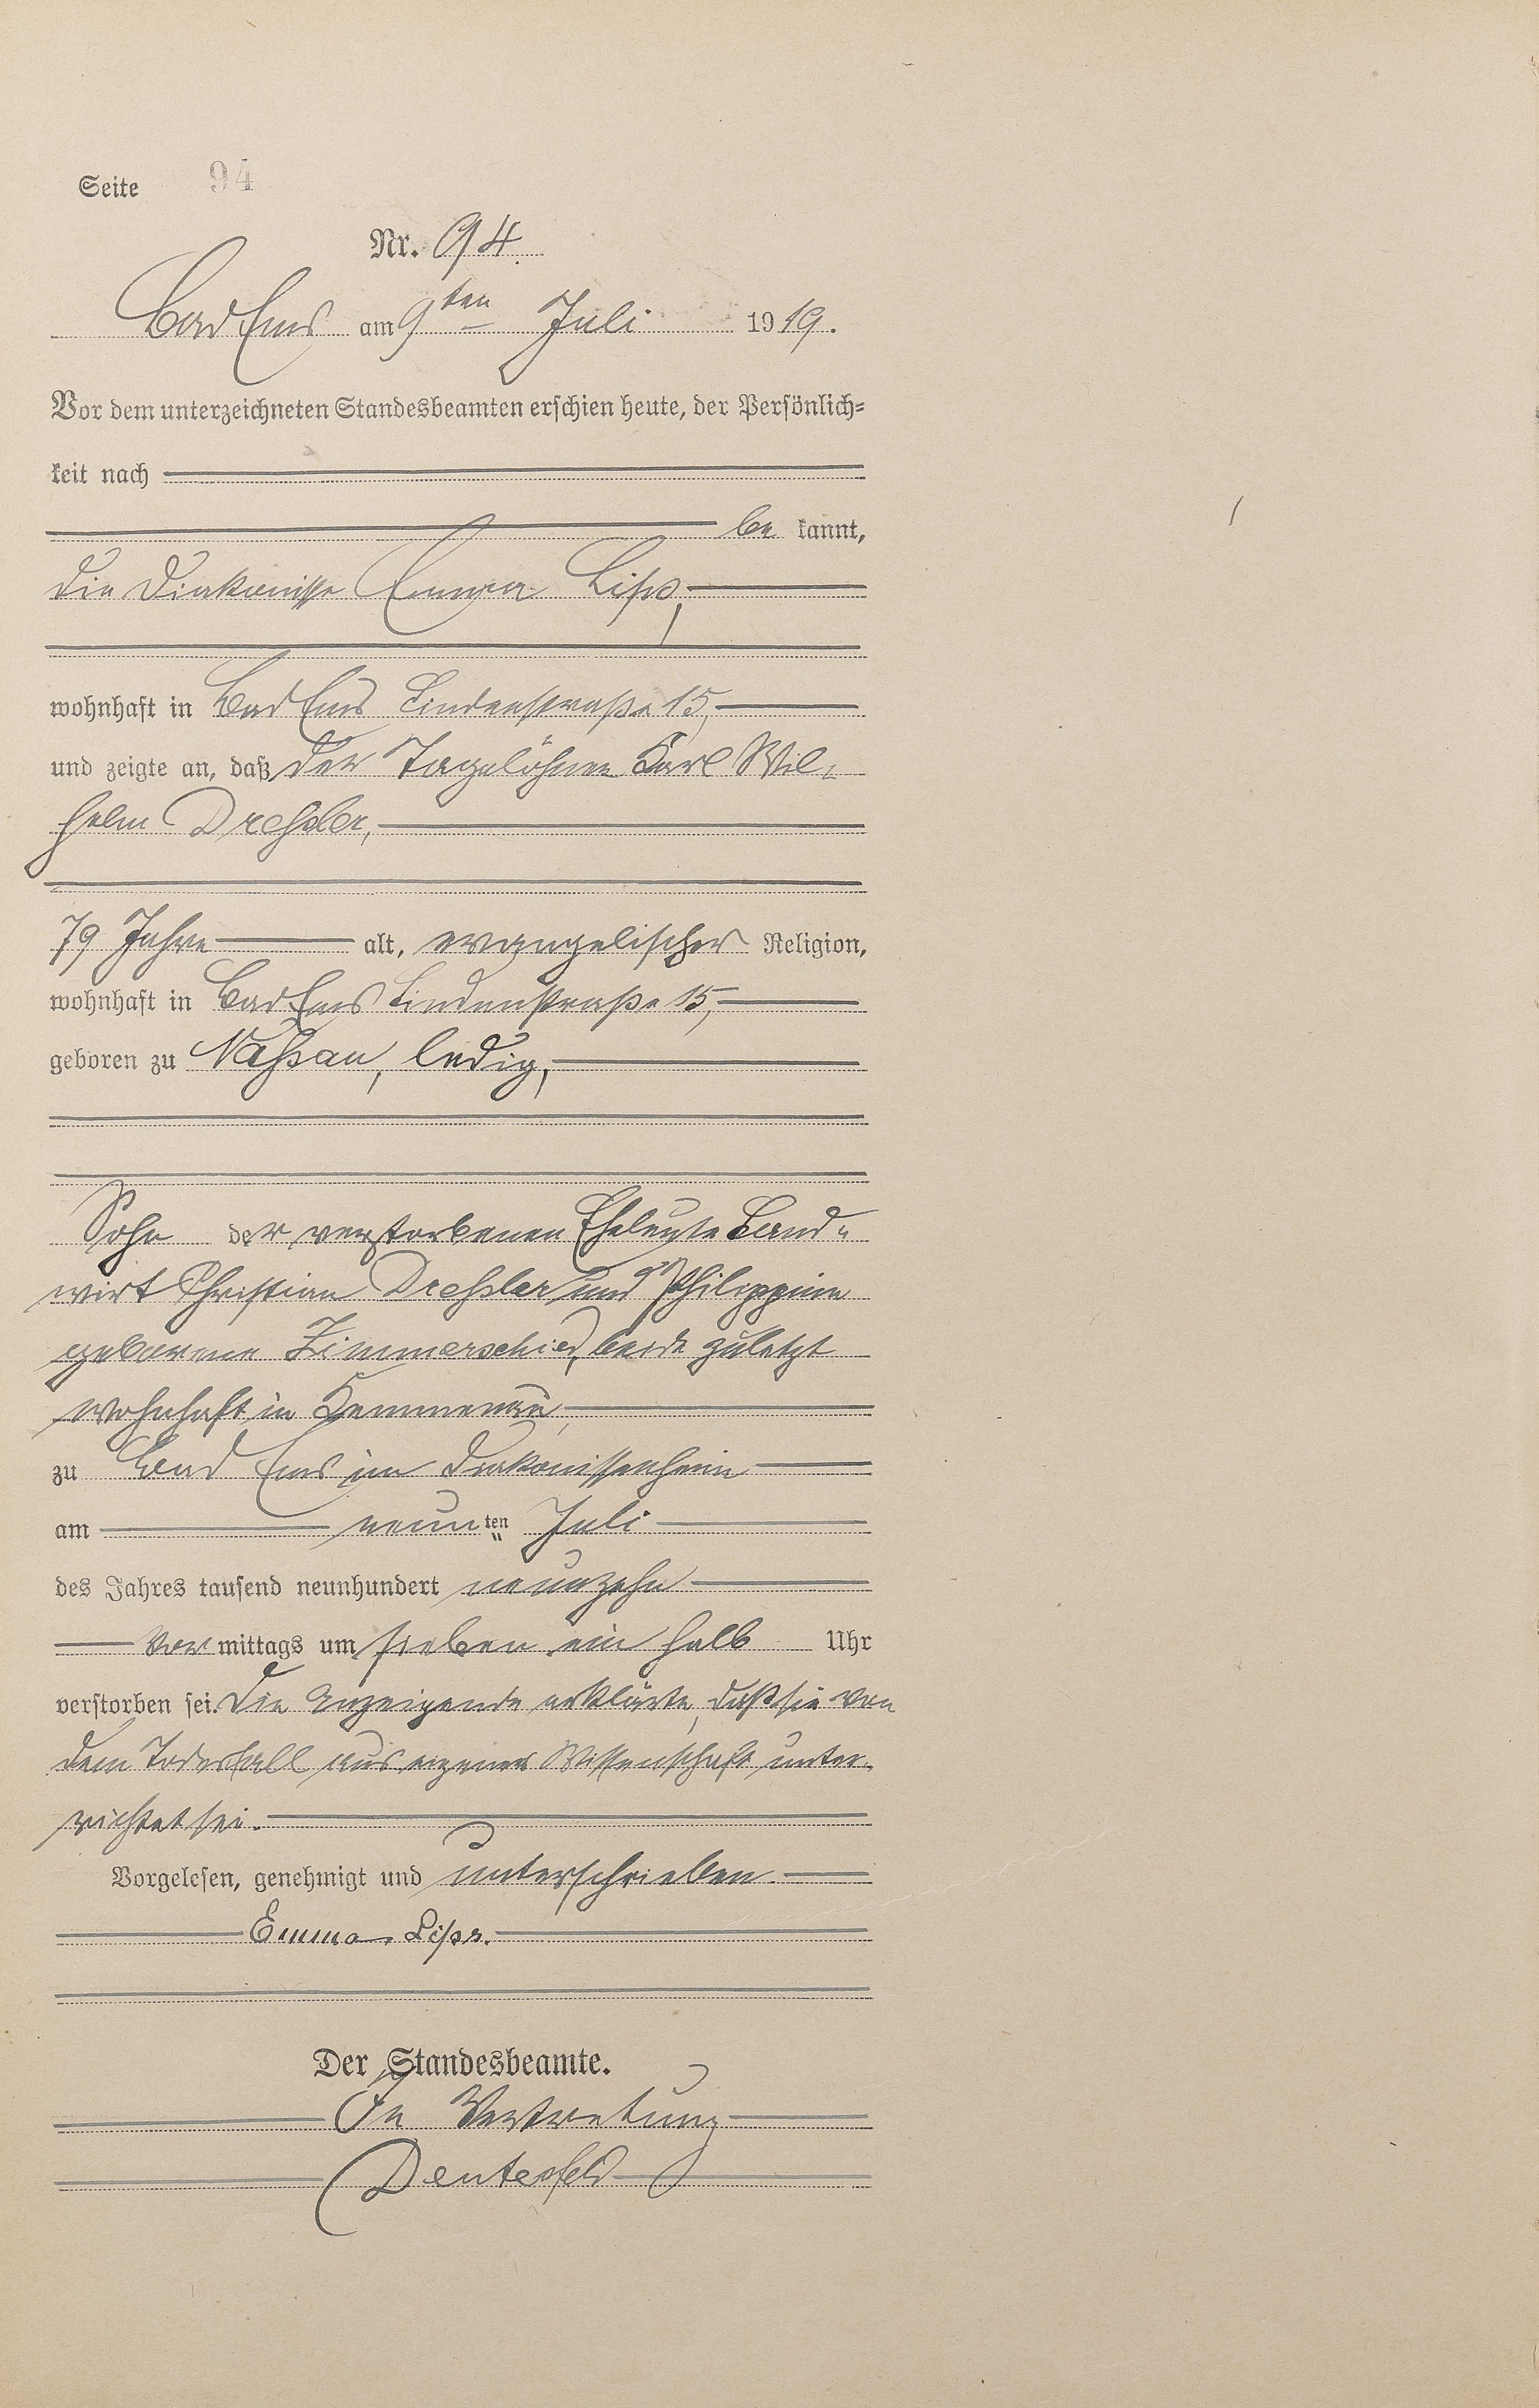 Seite 94
Nr. 94.
Bad Ems am 9ten Juli 1919.
Vor dem unterzeichneten Standesbeamten erschien heute, der Persönlich-
keit nach
be kannt,
die Diakonisse Emma Lips,
wohnhaft in Bad Ems Lindenstraße 15,
und zeigte an, daß der Tagelöhner Karl Wil-
helm Dreßler,
79 Jahre alt, evangelischer Religion,
wohnhaft in Bad Ems Lindenstraße 15,
geboren zu Naßau, ledig,
Sohn der verstorbenen Eheleute Land-
wirt Christian Dreßler und Philippine
geborene Zimmerschied, beide zuletzt
wohnhaft in Kemmenau,
zu Bad Ems im Diakonissenheim
am neunten Juli
des Jahres tausend neunhundert neunzehn
Vor mittags um sieben ein halb Uhr
verstorben sei. Die Anzeigende erklärte, daß sie von
dem Todesfall aus eigener Wissenschaft unter-
richtet sei.
Vorgelesen, genehmigt und unterschrieben.
Emma Lips.
Der Standesbeamte.
In Vertretung